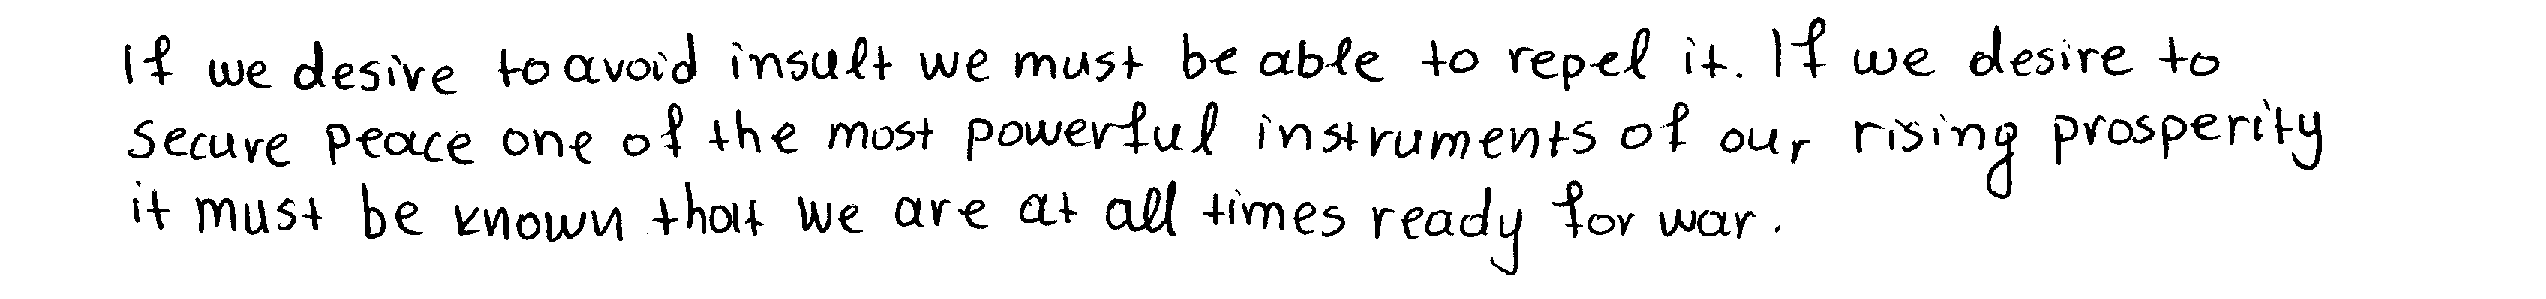 If we desire to avoid insult we must be able to repel it. If we desire to
secure peace one of the most powerful instruments of our rising prosperity
it must be known that we are at all times ready for war.